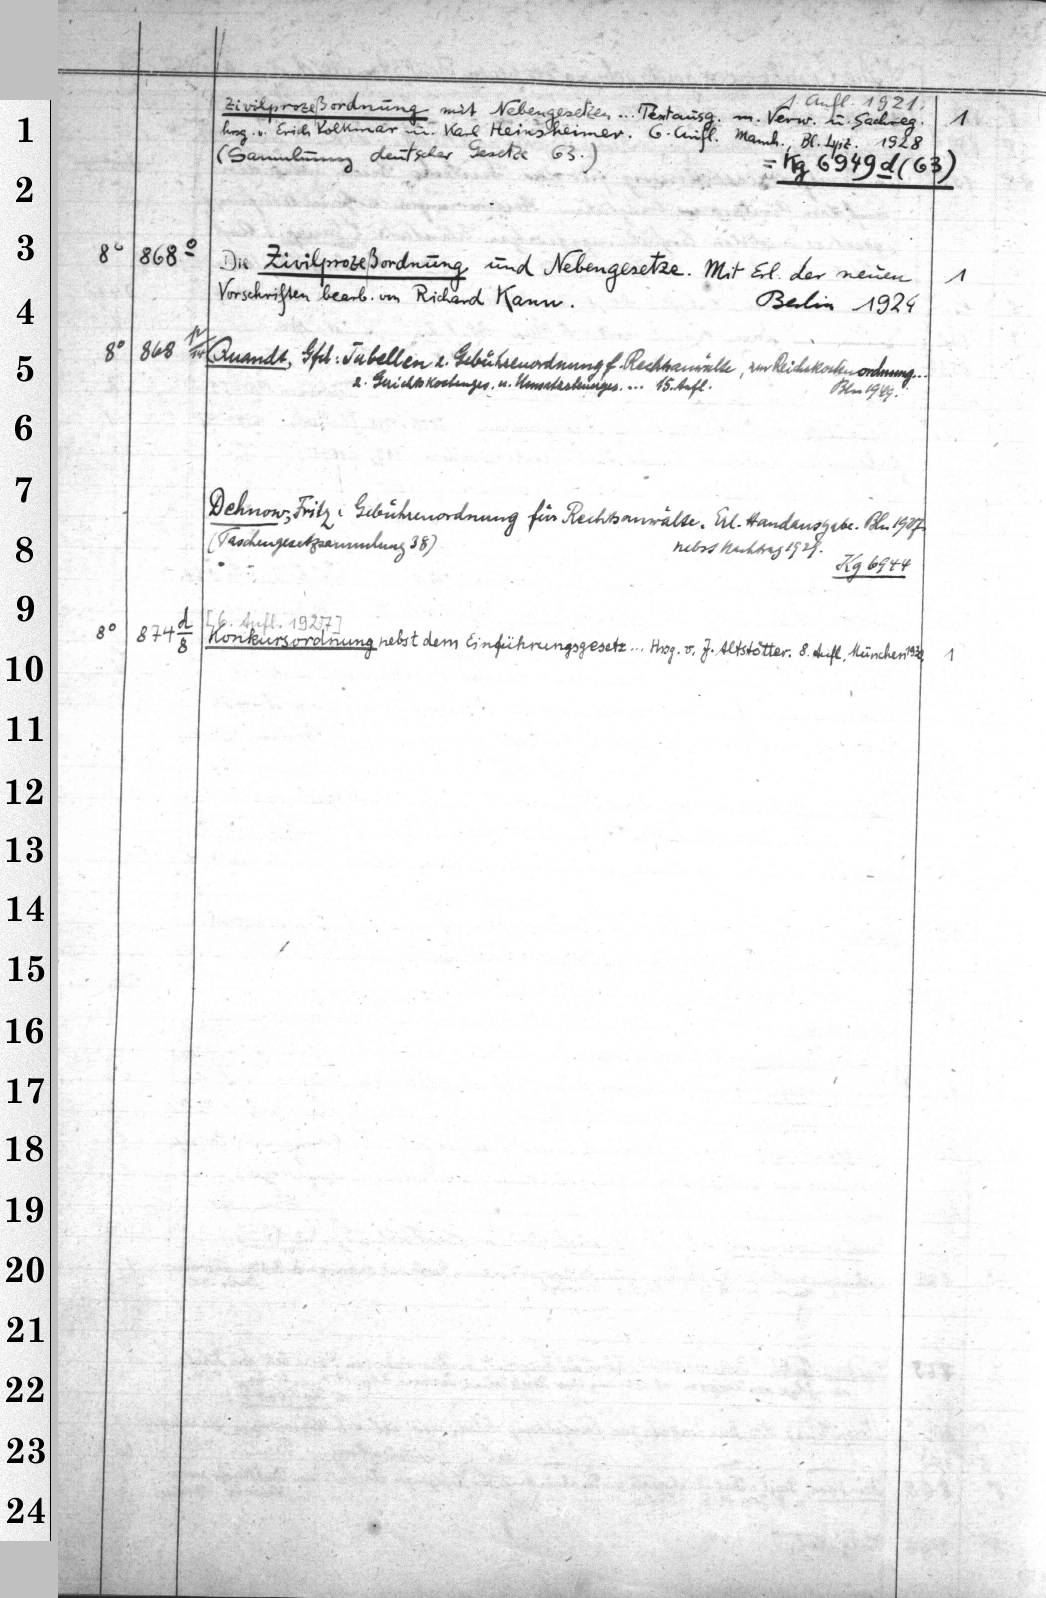 1
2
3
4
5
6
7
8
9
10
11
12
13
14
15
16
17
18
19
20
21
22
23
24
1. Aufl. 1921.
Zivilprozeßordnung mit Nebengesetzen ... Textausg. m. Verw. u. Sachreg. 1
hrsg. v. Erich Volkmar u. Karl Heinsheimer. 6. Aufl. Manh., Bl. Lpz. 1928
(Sammlung deutscher Gesetze 63.)
= Kg 6949 d (63)
8° 868 o Die Zivilprozeßordnung und Nebengesetze. Mit Erl. der neuen 1
Vorschriften bearb. von Richard Kann. Berlin 1924
8° 868 Quandt, Gfd.: Tabellen z. Gebührenordnung f. Rechtsanwälte, zur Reichskostenordnung...
z. Gerichtskostenges. u. Umsatzsteuerges. ... 15. Aufl. Bln 1949.
Dehnow, Fritz: Gebührenordnung für Rechtsanwälte. Erl. Handausgabe. Bln 1927
(Taschengesetzsammlung 38) nebst Nachtrag 1929.
Kg 6944
[6. Aufl. 1927]
8° 874 d/8 Konkursordnung nebst dem Einführungsgesetz ... Hrsg. v. J. Altstötter. 8. Aufl. München 1